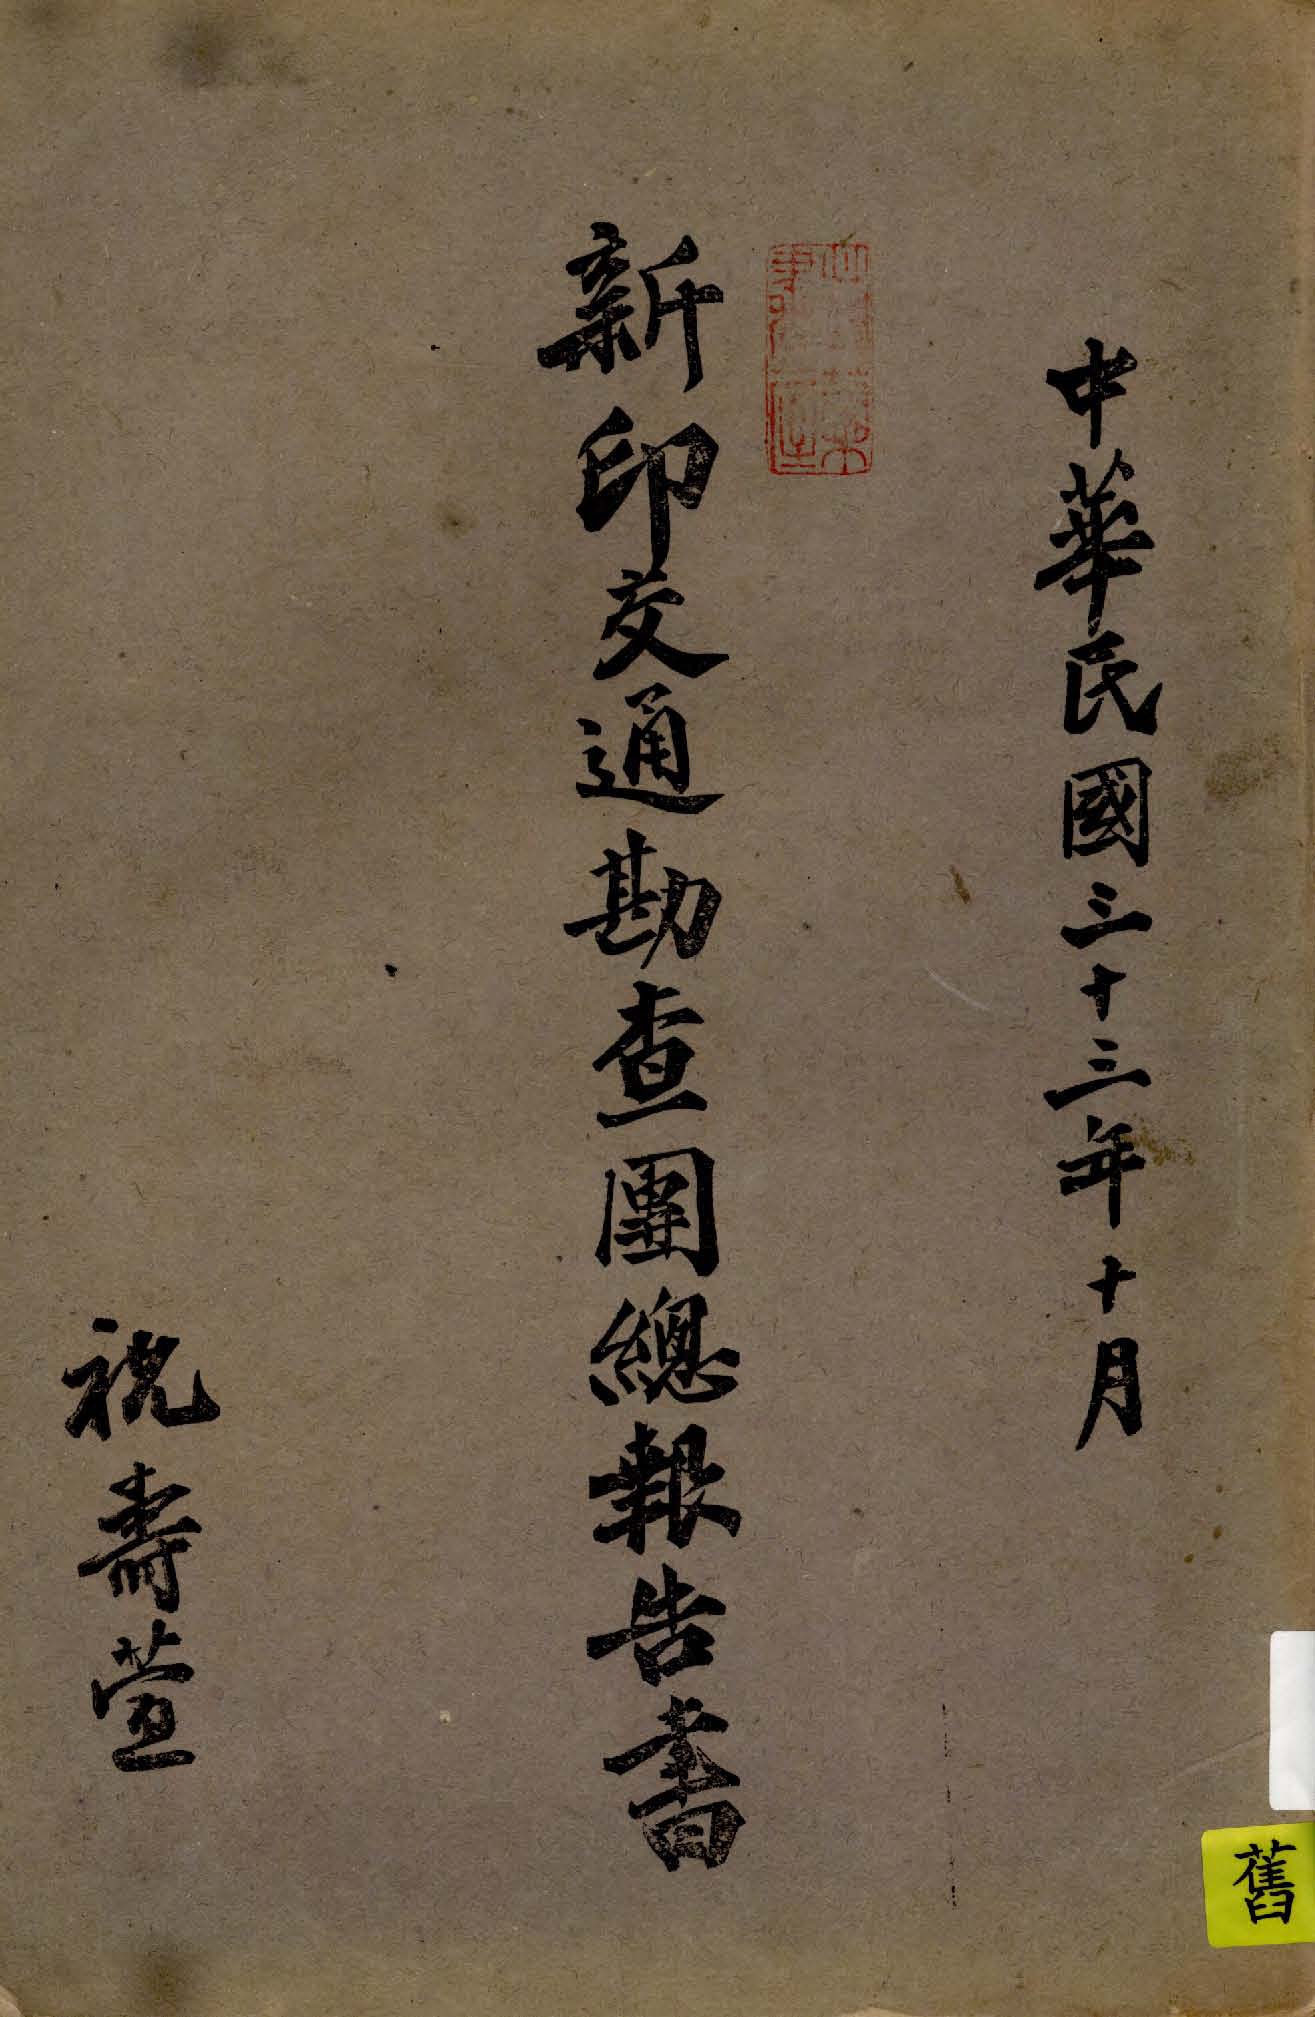 中華民國三十三年十月
新印交通勘查團總報告書
祝壽萱
舊